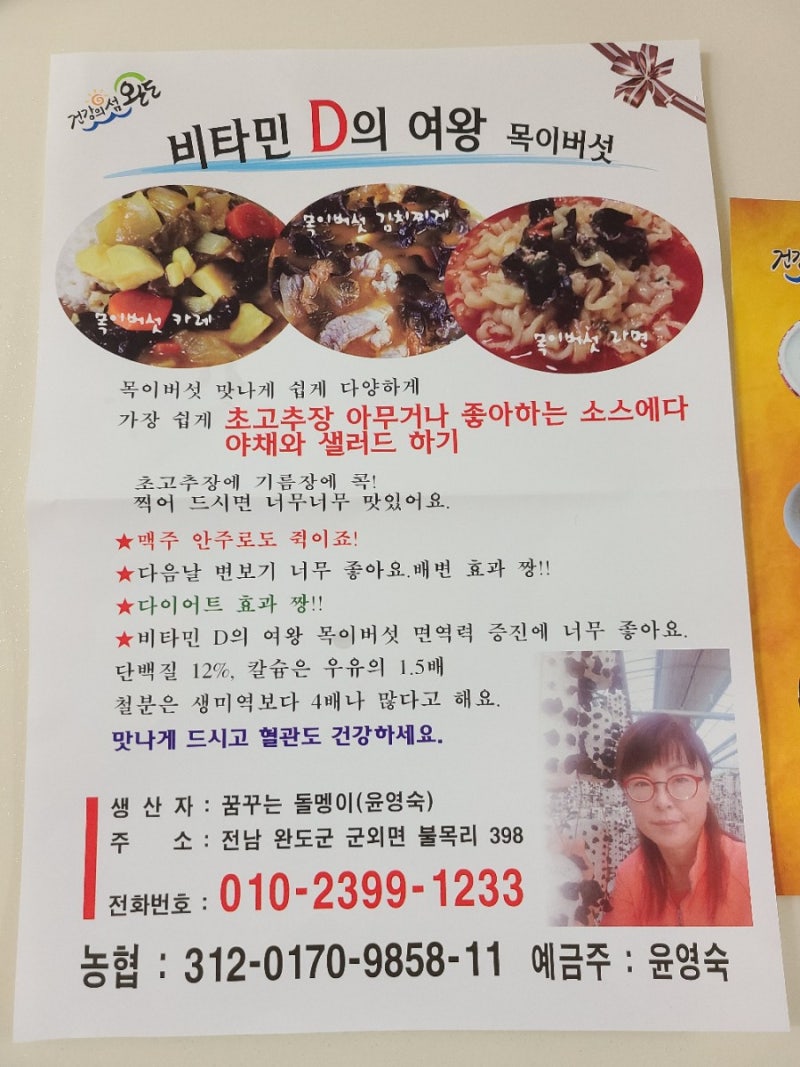 건강의 섬 완도
비타민 D의 여왕 목이버섯
목이버섯 카레
목이버섯 김치찌게
목이버섯 라면
목이버섯 맛나게 쉽게 다양하게
가장 쉽게 초고추장 아무거나 좋아하는 소스에다
야채와 샐러드 하기
초고추장에 기름장에 콕!
찍어 드시면 너무너무 맛있어요.
★맥주 안주로도 쥑이죠!
★다음날 변보기 너무 좋아요.배변 효과 짱!!
★다이어트 효과 짱!!
★비타민 D의 여왕 목이버섯 면역력 증진에 너무 좋아요.
단백질 12%, 칼슘은 우유의 1.5배
철분은 생미역보다 4배나 많다고 해요.
맛나게 드시고 혈관도 건강하세요.
생 산 자 : 꿈꾸는 돌멩이(윤영숙)
주 소 : 전남 완도군 군외면 불목리 398
전화번호 : 010-2399-1233
농협 : 312-0170-9858-11 예금주 : 윤영숙